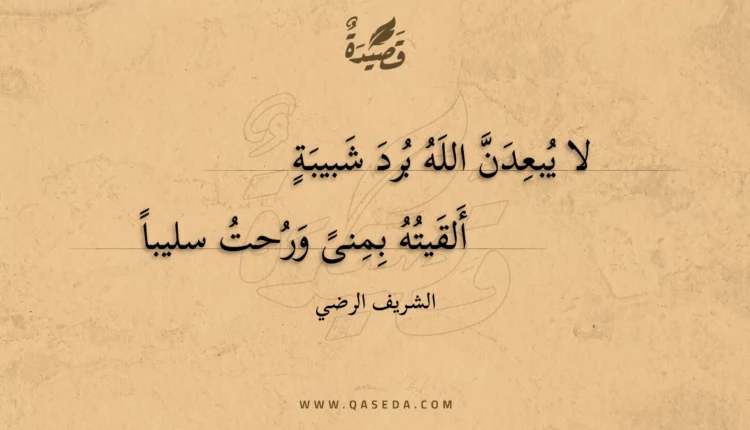 قَصِيْدَةٌ
لا يُبعِدَنَّ اللَهُ بُردَ شَبيبَةٍ
أَلقَيتُهُ بِمِنىً وَرُحتُ سليباً
الشريف الرضي
WWW.QASEDA.COM